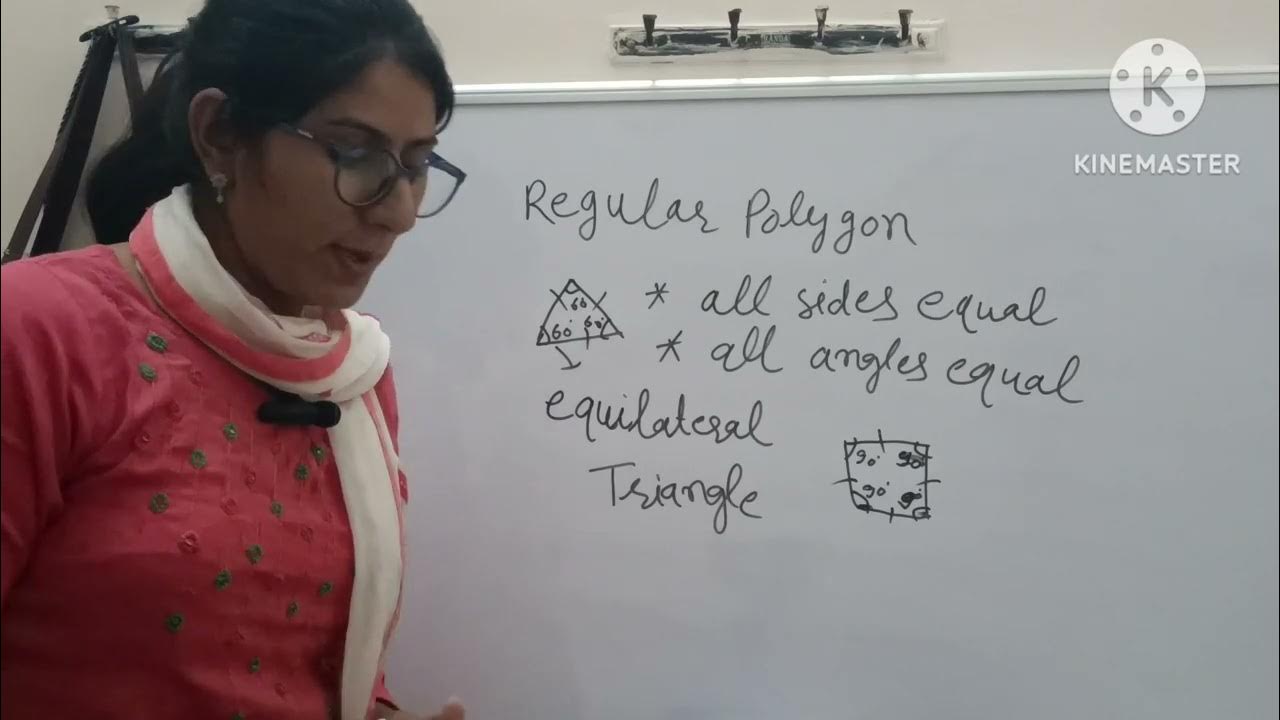 KINEMASTER
Regular Polygon
60
60° 60°
* all sides equal
* all angles equal
equilateral
Triangle
90° 90°
90° 90°